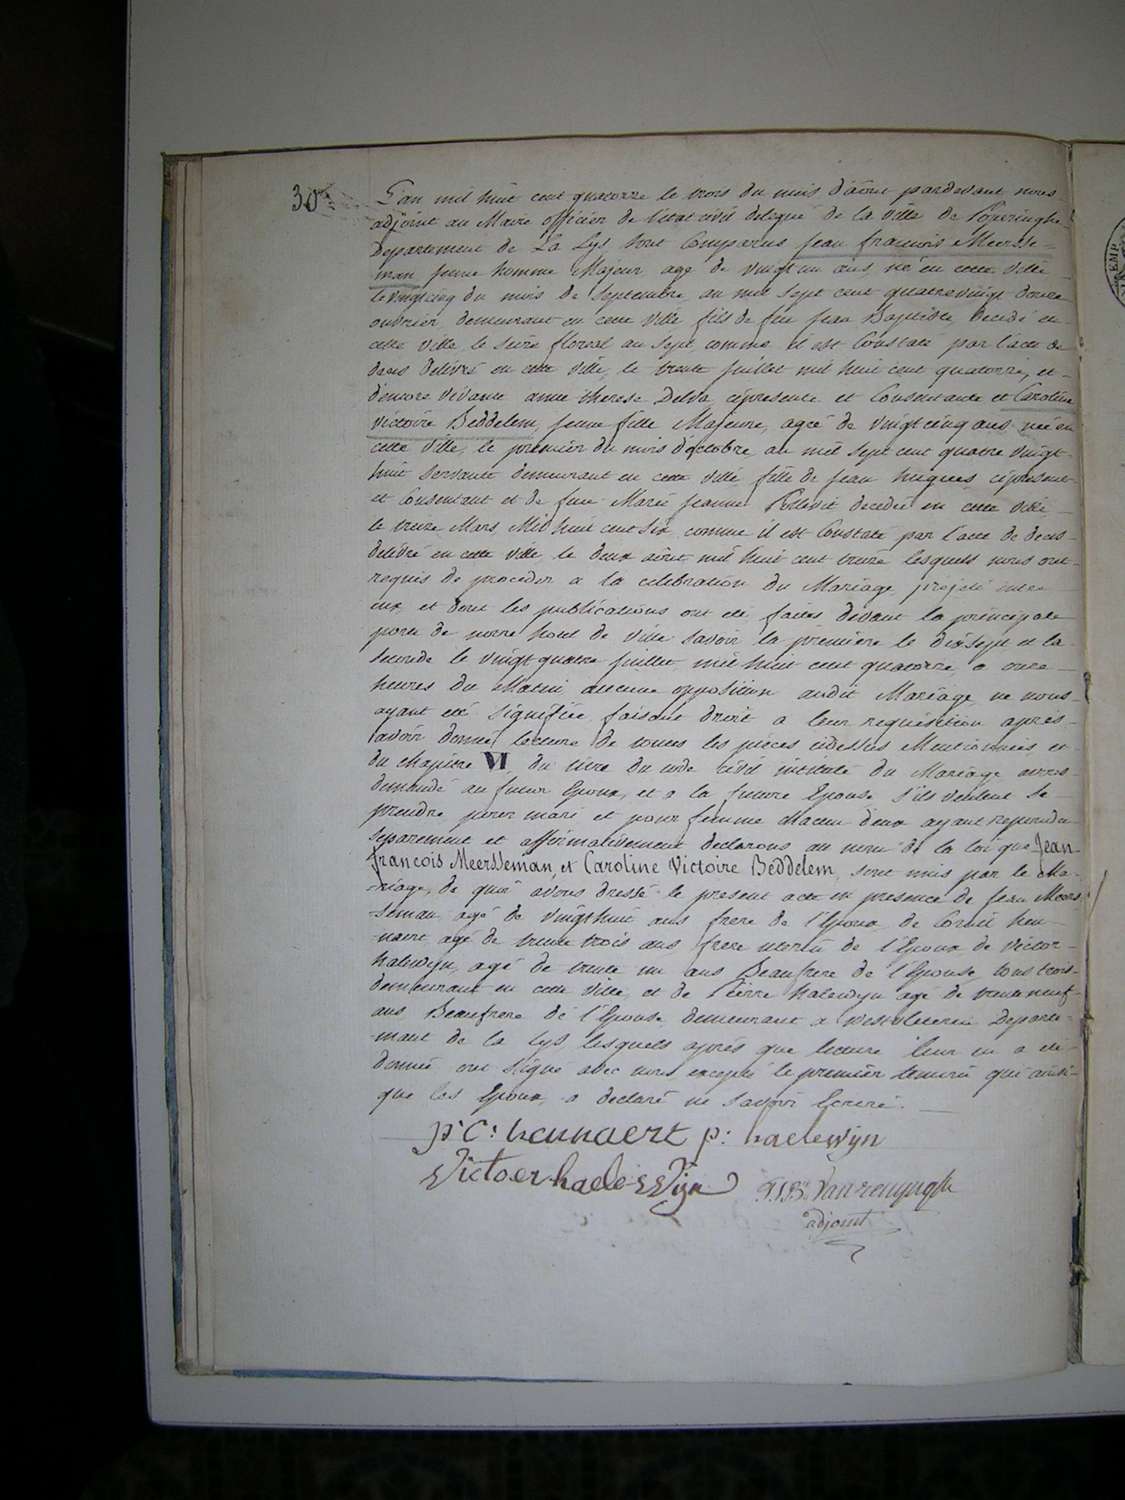 30
L'an mil huit cent quatorze le trois du mois d'aout pardevant nous
adjoint au Maire officier de l'etat civil delegué de la ville de Poperinghe
Departement de La Lys sont Comparus jean francois Meersse-
man jeune homme Majeur agé de vingt un ans né en cette ville
le vingt cinq du mois de septembre an mil sept cent quatre vingt douze
ouvrier demeurant en cette ville fils de feu jean Baptiste, decedé en
cette ville le seize floreal an sept comme il est Constaté par l'acte de
deces delivré en cette ville, le trente juillet mil huit cent quatorze, et
d'encore vivante anne therese Delva cipresente et Consentante et Caroline
victoire Beddelem, jeune fille Majeure, agée de vingt cinq ans née en
cette ville, le premier du mois d'octobre an mil sept cent quatre vingt
huit servante demeurant en cette ville fille de jean hugues cipresent
et Consentant et de feue Marie jeanne decedée en cette ville
le treize Mars Mil huit cent six comme il est Constaté par l'acte de deces
delivré en cette ville le deux aout mil huit cent treize lesquels nous ont
requis de proceder a la celebration du Mariage projeté entre
eux et dont les publications ont eté faites devant la principale
porte de notre hotel de ville savoir la premiere le dixsept et la
seconde le vingt quatre juillet mil huit cent quatorze a onze
heures du Matin aucune opposition audit Mariage ne nous
ayant eté signifiée faisant droit a leur requisition après
avoir donné lecture de toutes les pièces cidessus Mentionnées et
du chapitre VI du titre du code civil intitulé du Mariage avons
demandé au futur Epoux, et a la future Epouse s'ils veulent se
prendre pour mari et pour femme chacun d'eux ayant repondu
separement et affirmativement declarons au nom de la loi que Jean
francois Meersseman, et Caroline Victoire Beddelem, sont unis par le Ma-
riage, de quoi avons dressé le present acte en presence de jean Meers-
seman agé de vingthuit ans frere de l'Epoux de Cornil hen-
naert agé de trente trois ans frere uterin de l'Epoux de victor
halewyn, agé de trente un ans Beaufrere de l'Epouse, tous trois
demeurant en cette ville, et de Pierre halewyn agé de trente neuf
ans Beaufrere de l'Epouse demeurant a Westvleteren Departe-
ment de la Lys lesquels après que lecture leur en a eté
donnée ont signé avec nous excepté le premier temoin qui ainsi
que les Epoux, a declaré ne savoir Ecrire.
p: C: hennaert p: haelewijn
Victoer haelewijn J.Bte Vanrenynghe
adjoint